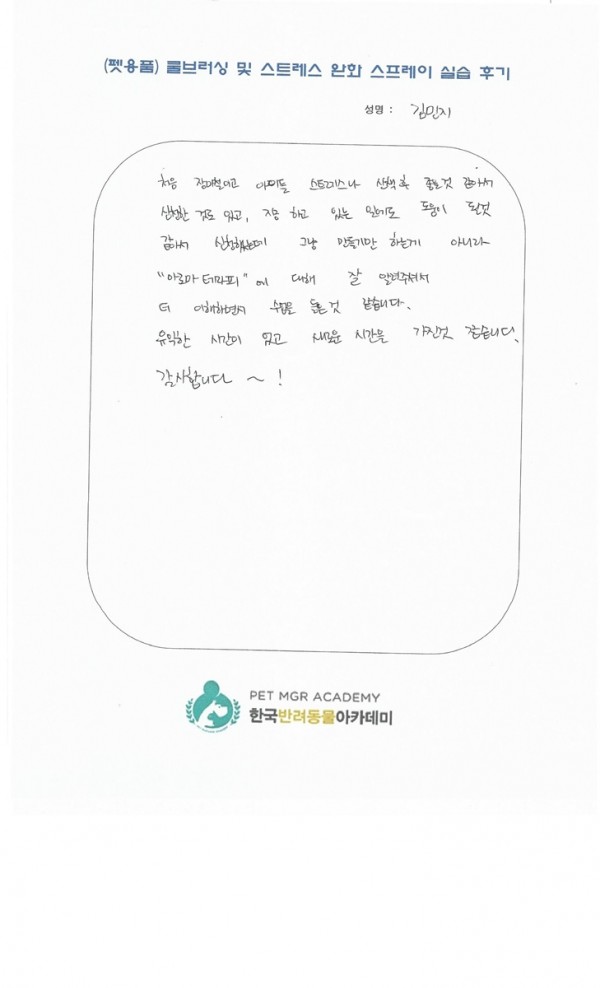 (펫용품) 롤브러싱 및 스트레스 완화 스프레이 실습 후기
성명 : 김민지
처음 아이들 스트레스나 산책 좋을것 같아서
신청한 것도 있고, 지금 하고 있는 일에도 도움이 될것
같아서 신청했는데 그냥 만들기만 하는게 아니라
"아로마 테라피" 에 대해 잘 알려주셔서
더 이해하면서 수업을 들은 것 같습니다.
유익한 시간이 였고 새로운 시간을 가진것 같습니다.
감사합니다 ~ !
PET MGR ACADEMY
한국반려동물아카데미